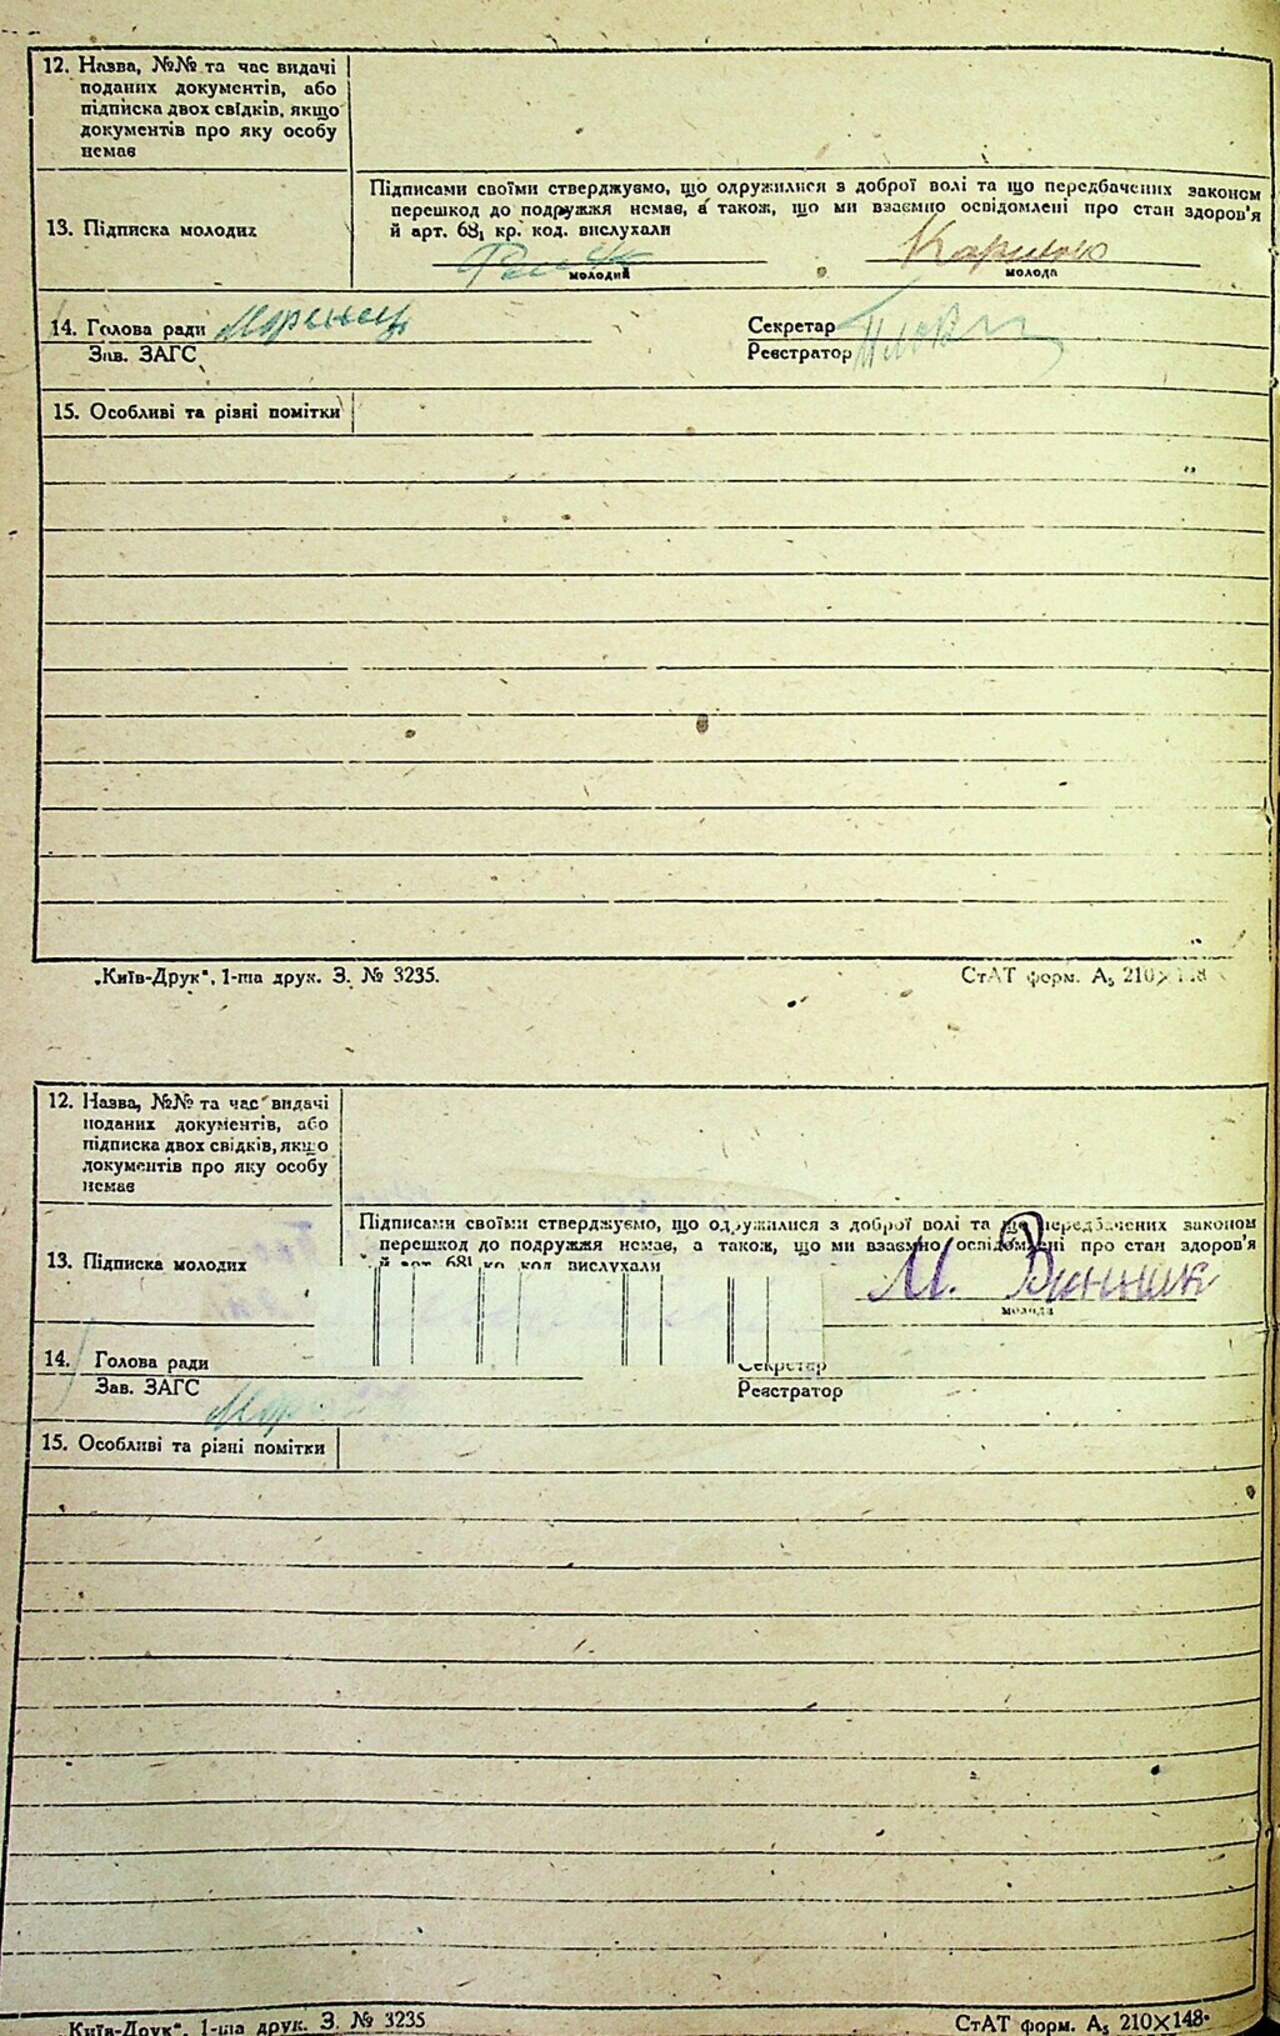 12. Назва, №№ та час видачі
поданих документів, або
підписка двох свідків, якщо
документів про яку особу
немає
Підписами своїми стверджуємо, що одружилися з доброї волі та що передбачених законом
перешкод до подружжя немає, а також, що ми взаємно освідомлені про стан здоров'я
13. Підписка молодих
й арт. 68₁ кр. код. вислухали
молодий
молода
14. Голова ради
Секретар
Зав. ЗАГС
Реєстратор
15. Особливі та різні помітки
„Київ-Друк“, 1-ша друк. З. № 3235.
СтАТ форм. А₅ 210×148
12. Назва, №№ та час видачі
поданих документів, або
підписка двох свідків, якщо
документів про яку особу
немає
Підписами своїми стверджуємо, що одружилися з доброї волі та що передбачених законом
перешкод до подружжя немає, а також, що ми взаємно освідомлені про стан здоров'я
13. Підписка молодих
й арт. 68¹ кр. код. вислухали
М. Винник
молода
14. Голова ради
Секретар
Зав. ЗАГС
Реєстратор
15. Особливі та різні помітки
„Київ-Друк“, 1-ша друк. З. № 3235
СтАТ форм. А₅ 210×148